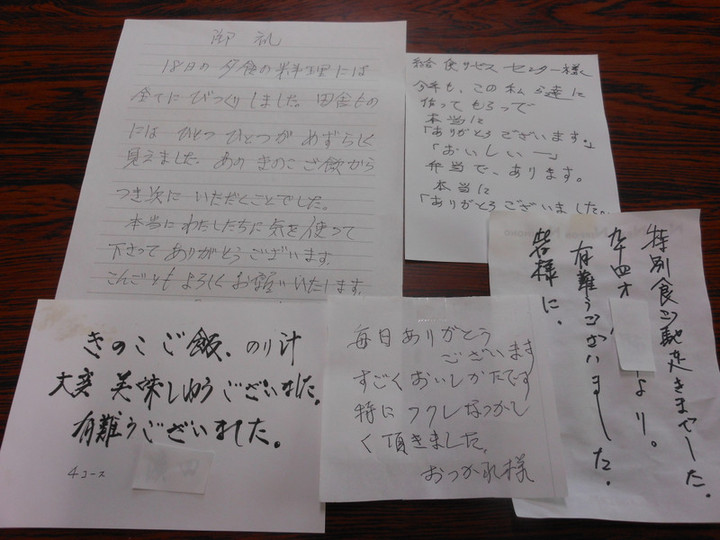 御礼
18日の夕食の料理には
全てにびっくりしました。田舎もの
にはひとつひとつがめずらしく
見えました。ありきのこご飯から
つき次にいただくとことでした。
本当にわたしたちに気を使って
下さってありがとうございます。
こんごともよろしくお願いいたします。
給食サービスセンター様
今年も、この私達に
作ってもらって
本当に
「ありがとうございます。」
「おいしいー」
弁当で、あります。
本当に
「ありがとうございました。
きのこご飯、のり汁
大変美味しゅうございました。
有難うございました。
4コース
毎日ありがとう
ございます
すごくおいしかたです
特にフクしなつかし
く頂きました。
おつかれ様
特別食ご馳走さまでした。
九十四才 より。
有難うございました。
皆様に。